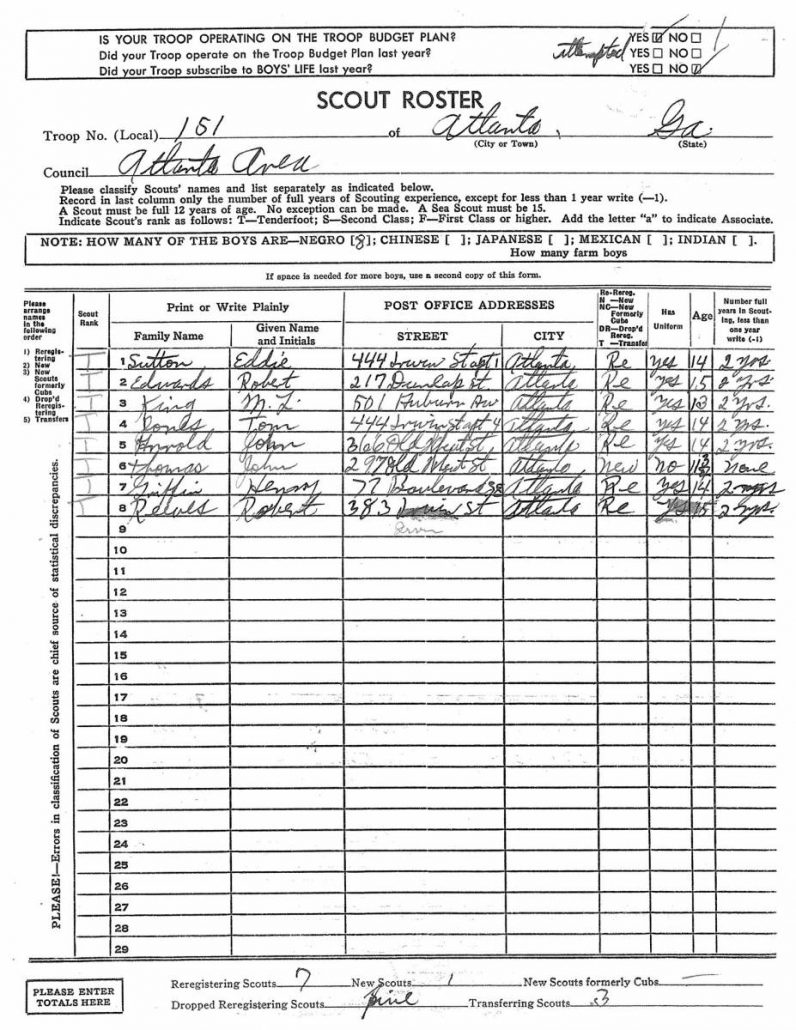 IS YOUR TROOP OPERATING ON THE TROOP BUDGET PLAN? YES ☑ NO ☐
Did your Troop operate on the Troop Budget Plan last year? attempted YES ☐ NO ☐
Did your Troop subscribe to BOYS' LIFE last year? YES ☐ NO ☑
SCOUT ROSTER
Troop No. (Local) 151 of Atlanta, Ga.
(City or Town) (State)
Council Atlanta Area
Please classify Scouts' names and list separately as indicated below.
Record in last column only the number of full years of Scouting experience, except for less than 1 year write (—1).
A Scout must be full 12 years of age. No exception can be made. A Sea Scout must be 15.
Indicate Scout's rank as follows: T—Tenderfoot; S—Second Class; F—First Class or higher. Add the letter "a" to indicate Associate.
NOTE: HOW MANY OF THE BOYS ARE—NEGRO [8]; CHINESE [ ]; JAPANESE [ ]; MEXICAN [ ]; INDIAN [ ].
How many farm boys
If space is needed for more boys, use a second copy of this form.
Please arrange names in the following order
1) Reregistering
2) New
3) New Scouts formerly Cubs
4) Drop'd Reregistering
5) Transfers
Scout Rank
Print or Write Plainly
Family Name
Given Name and Initials
POST OFFICE ADDRESSES
STREET
CITY
Re-Rereg.
N —New
NC—New Formerly Cubs
DR—Drop'd Rereg.
T —Transfer
Has Uniform
Age
Number full years in Scouting, less than one year write (-1)
T 1 Sutton Eddie 444 Irwin St apt 1 Atlanta Re Yes 14 2 yrs.
T 2 Edwards Robert 217 Dunlap st. Atlanta Re Yes 15 2 yrs.
T 3 King M. L. 501 Auburn Av Atlanta Re Yes 13 2 yrs.
T 4 Tom 444 Irwin St apt 4 Atlanta Re yes 14 2 yrs.
T 5 Arnold John Old St Atlanta Re Yes 14 2 yrs.
6 Thomas John 297 Old St Atlanta New no none
T 7 Griffin Henry 77 Boulevard Atlanta Re Yes 14 2
T 8 Reeves Robert 383 Irwin St Atlanta Re Yes 15 2 yrs.
9 Irwin
10
11
12
13
14
15
16
17
18
19
20
21
22
23
24
25
26
27
28
29
PLEASE!—Errors in classification of Scouts are chief source of statistical discrepancies.
PLEASE ENTER TOTALS HERE
Reregistering Scouts 7 New Scouts 1 New Scouts formerly Cubs —
Dropped Reregistering Scouts five Transferring Scouts 3